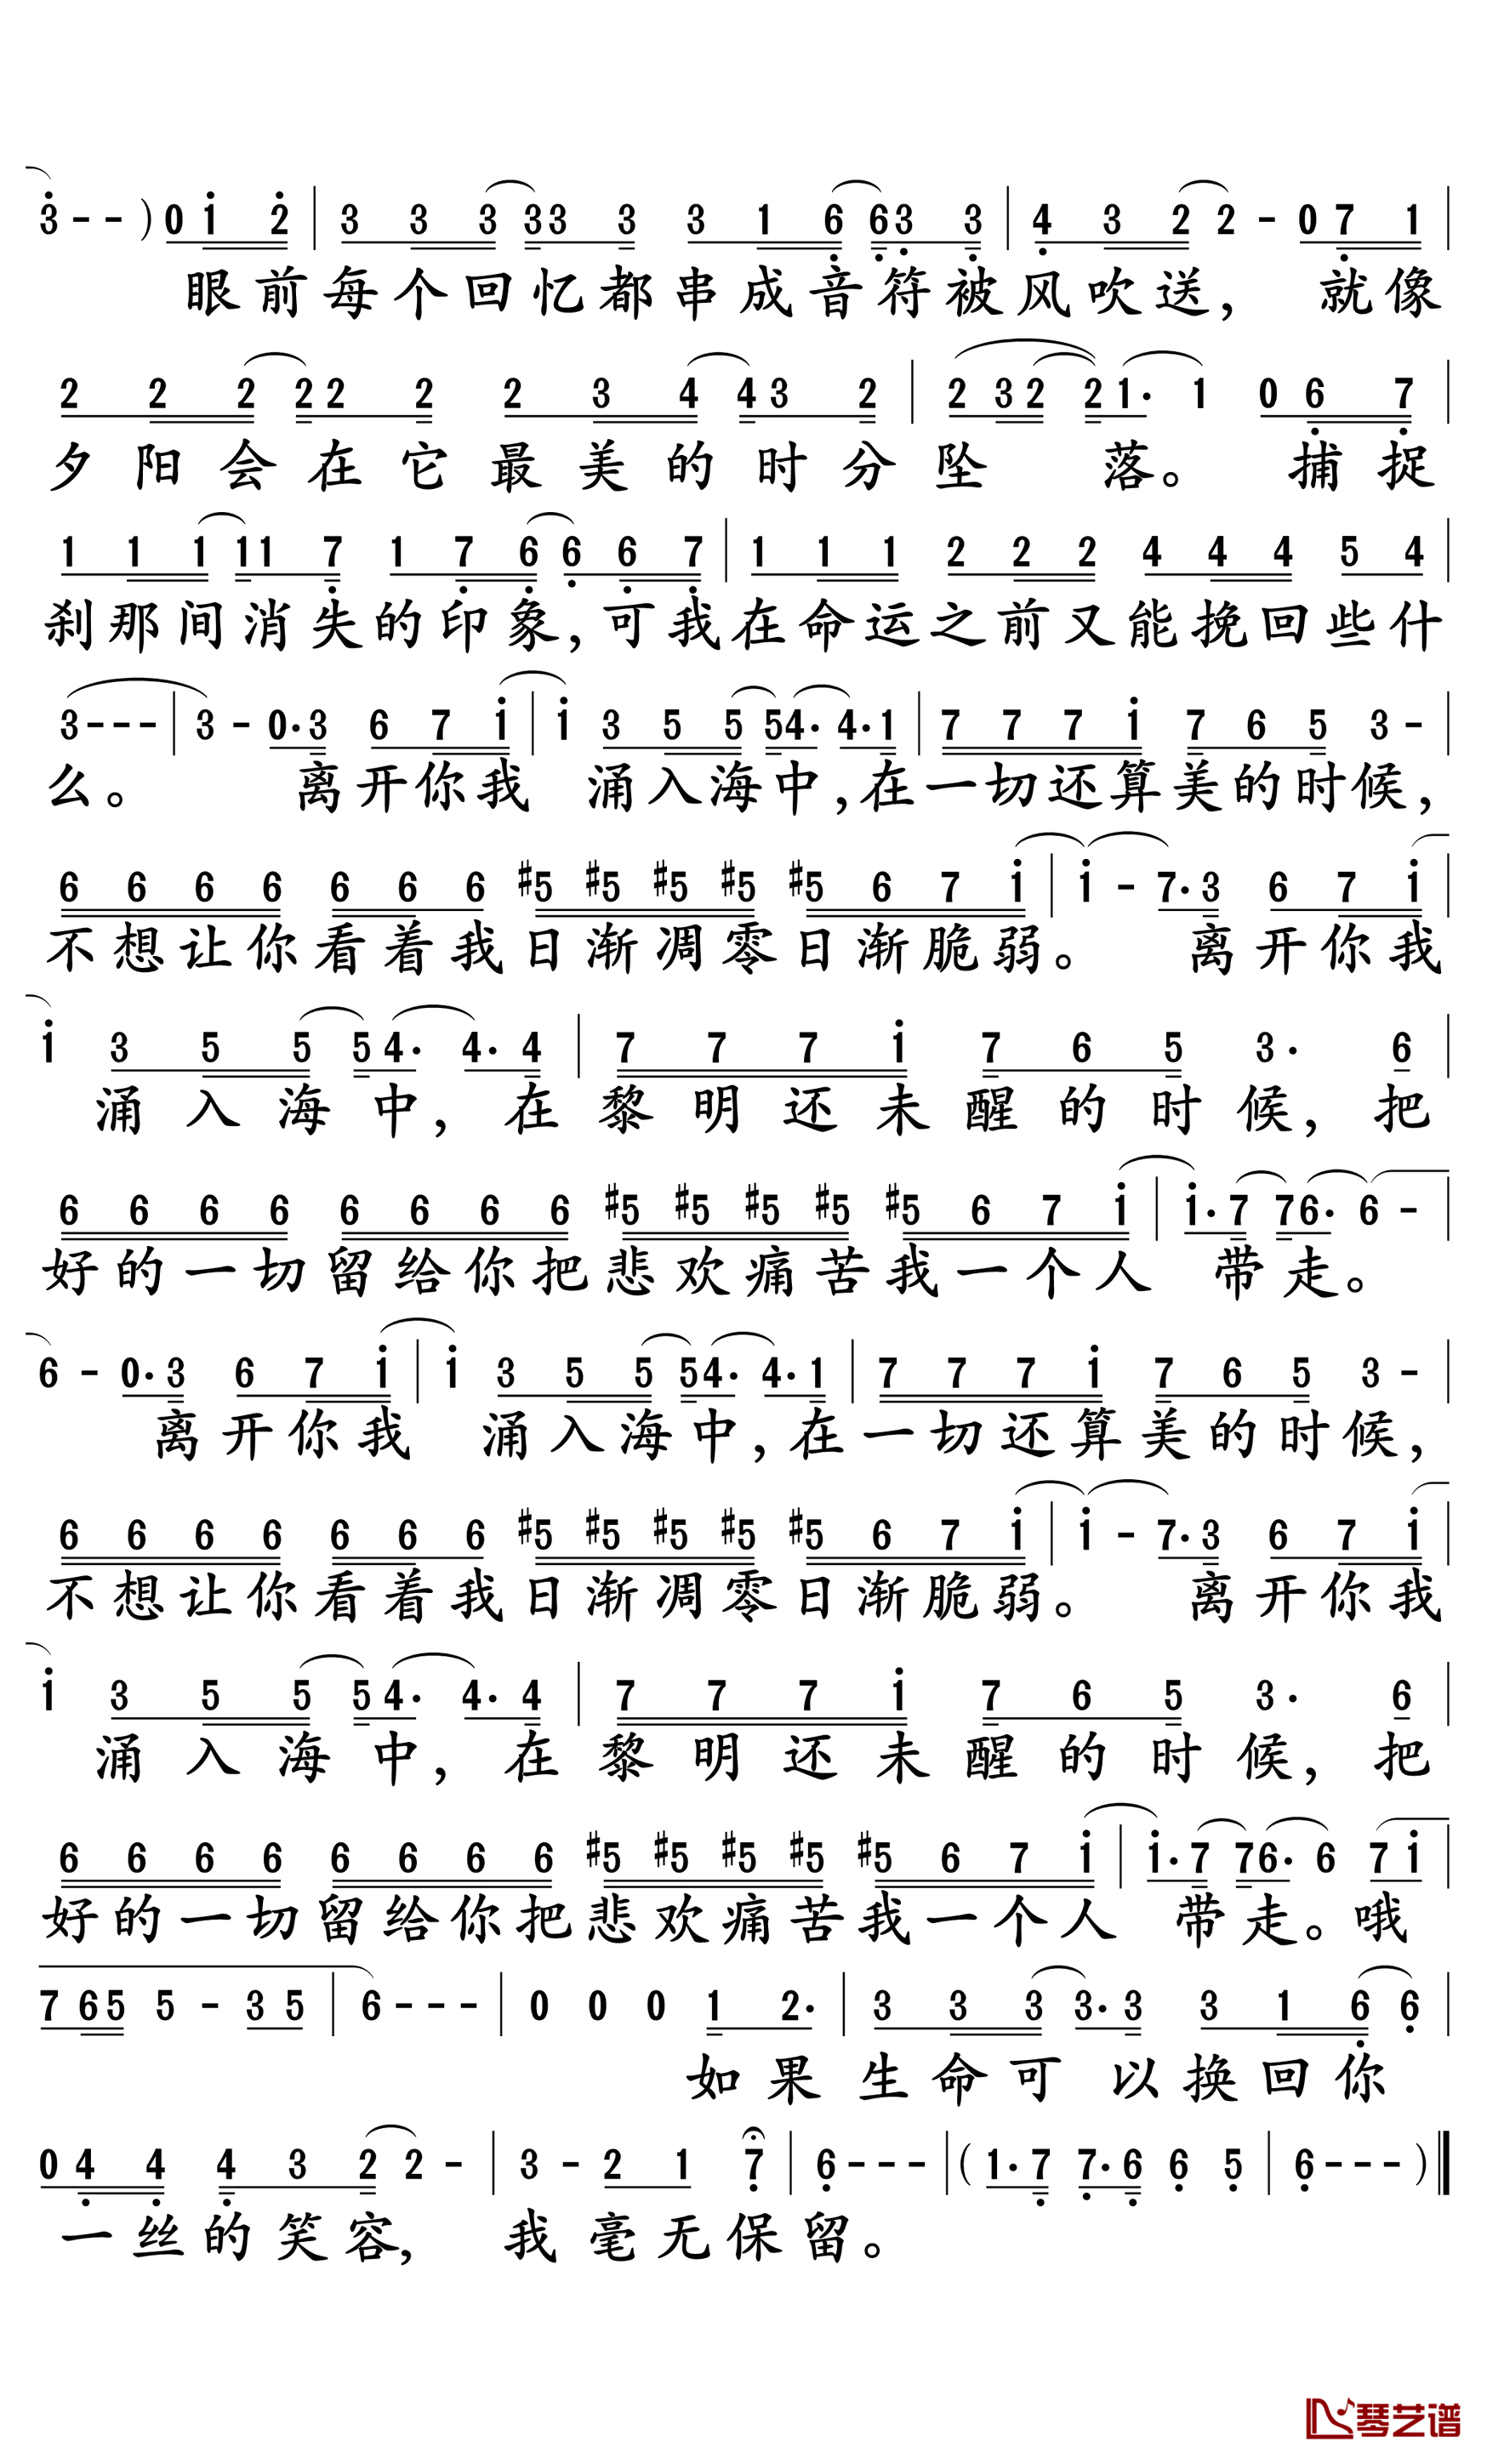 3 - - ) 0 1 2 | 3 3 3 3 3 3 3 1 6 6 3 3 | 4 3 2 2 - 0 7 1 |
眼前每个回忆都串成音符被风吹送， 就像
2 2 2 2 2 2 2 3 4 4 3 2 | 2 3 2 2 1· 1 0 6 7 |
夕阳会在它最美的时分坠 落。 捕捉
1 1 1 1 1 7 1 7 6 6 6 7 | 1 1 1 2 2 2 4 4 4 5 4 |
刹那间消失的印象，可我在命运之前又能挽回些什
3 - - - | 3 - 0· 3 6 7 1 | 1 3 5 5 5 4· 4· 1 | 7 7 7 1 7 6 5 3 - |
么。 离开你我 涌入海中，在一切还算美的时候，
6 6 6 6 6 6 6 #5 #5 #5 #5 #5 6 7 1 | 1 - 7· 3 6 7 1 |
不想让你看着我日渐凋零日渐脆弱。 离开你我
1 3 5 5 5 4· 4· 4 | 7 7 7 1 7 6 5 3· 6 |
涌入海中，在黎明还未醒的时候，把
6 6 6 6 6 6 6 6 #5 #5 #5 #5 #5 6 7 1 | 1· 7 7 6· 6 - |
好的一切留给你把悲欢痛苦我一个人 带走。
6 - 0· 3 6 7 1 | 1 3 5 5 5 4· 4· 1 | 7 7 7 1 7 6 5 3 - |
离开你我 涌入海中，在一切还算美的时候，
6 6 6 6 6 6 6 #5 #5 #5 #5 #5 6 7 1 | 1 - 7· 3 6 7 1 |
不想让你看着我日渐凋零日渐脆弱。 离开你我
1 3 5 5 5 4· 4· 4 | 7 7 7 1 7 6 5 3· 6 |
涌入海中，在黎明还未醒的时候，把
6 6 6 6 6 6 6 6 #5 #5 #5 #5 #5 6 7 1 | 1· 7 7 6· 6 7 1 |
好的一切留给你把悲欢痛苦我一个人 带走。哦
7 6 5 5 - 3 5 | 6 - - - | 0 0 0 1 2· | 3 3 3 3· 3 3 1 6 6 |
如果生命可 以换回你
0 4 4 4 3 2 2 - | 3 - 2 1 7 | 6 - - - | ( 1· 7 7· 6 6 5 | 6 - - - )
一丝的笑容， 我毫无保留。
琴艺谱